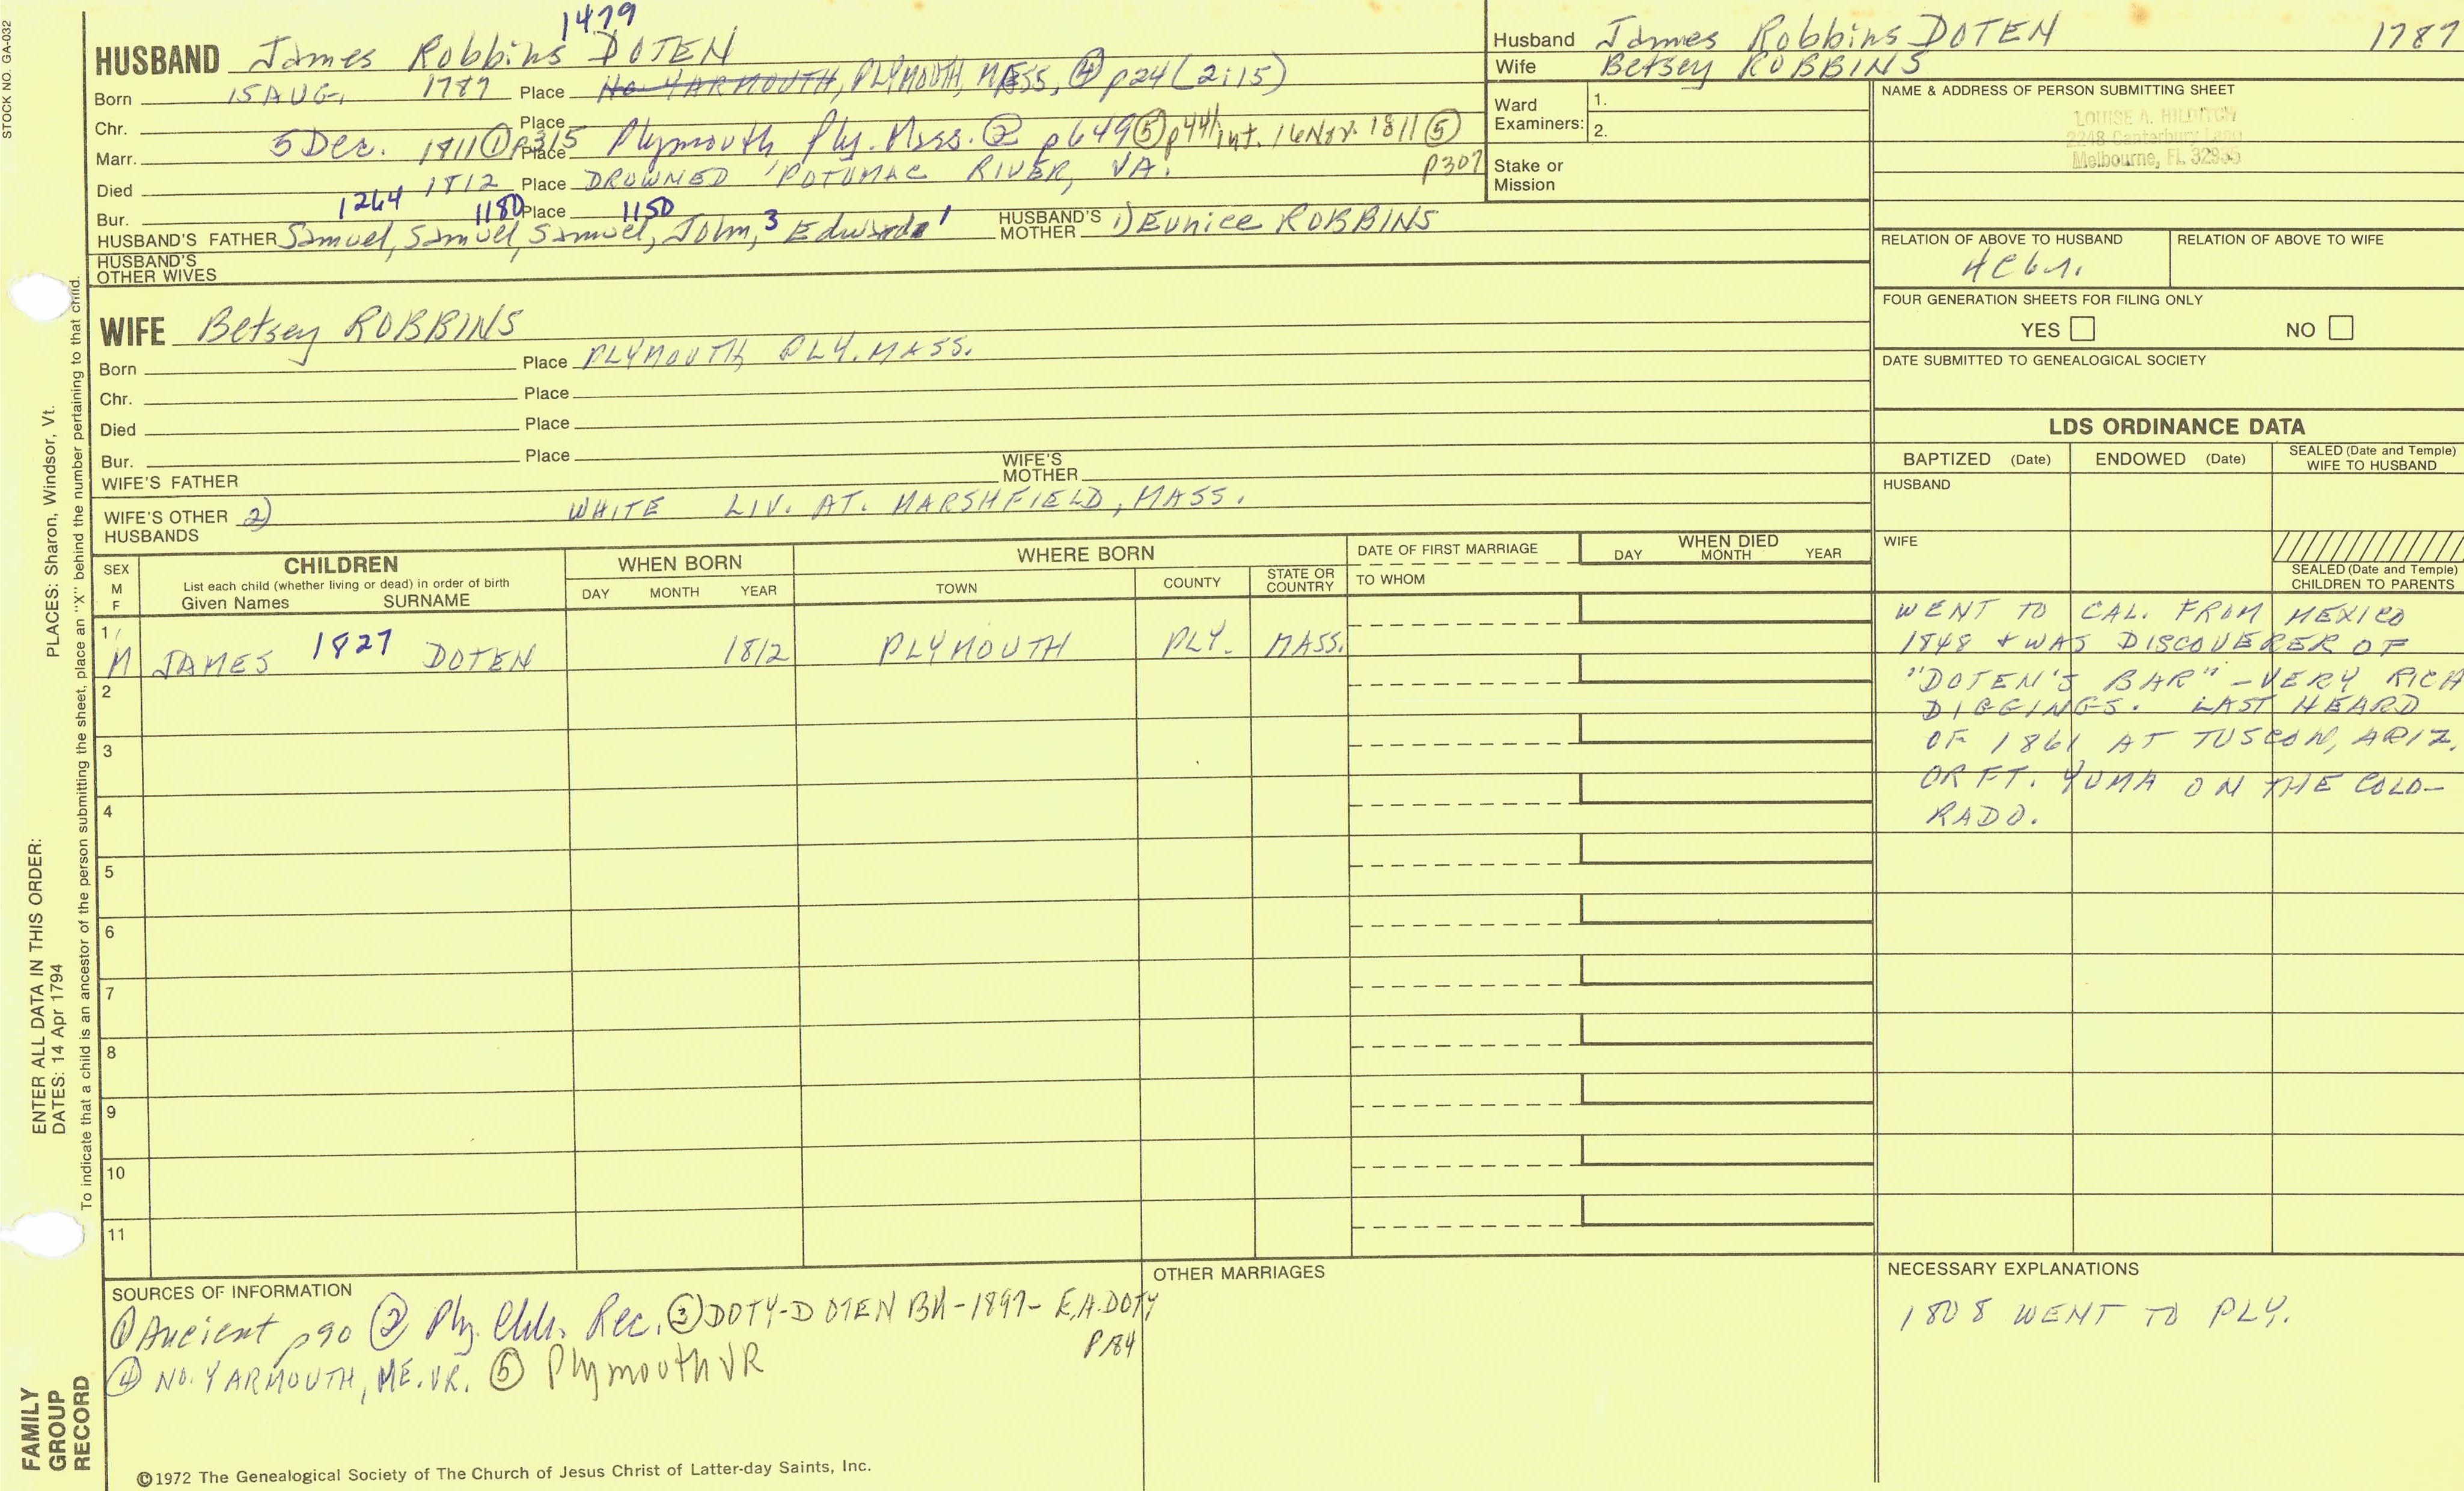 STOCK NO. GA-032
1479
HUSBAND James Robbins DOTEN
Born 15 AUG. 1787 Place No YARMOUTH, PLYMOUTH, MASS, ④ p24 (2:15)
Chr. Place
Marr. 5 Dec. 1811 ① p315 Place Plymouth Ply. Mass. ② p649 ⑤ p441 int. 16 Nov. 1811 ⑤
p307
Died 1812 Place DROWNED POTOMAC RIVER, VA.
Bur. Place
1264 1180 1150
HUSBAND'S FATHER Samuel, Samuel, Samuel, John,3 Edward1 HUSBAND'S MOTHER 1) Eunice ROBBINS
HUSBAND'S
OTHER WIVES
WIFE Betsey ROBBINS
Born Place PLYMOUTH PLY. MASS.
Chr. Place
Died Place
Bur. Place
WIFE'S FATHER WIFE'S MOTHER
WIFE'S OTHER HUSBANDS 2) WHITE LIV. AT. MARSHFIELD, MASS.
Husband James Robbins DOTEN 1787
Wife Betsey ROBBINS
Ward Examiners: 1.
2.
Stake or
Mission
NAME & ADDRESS OF PERSON SUBMITTING SHEET
LOUISE A. HILDITCH
2248 Canterbury Lane
Melbourne, FL 32935
RELATION OF ABOVE TO HUSBAND RELATION OF ABOVE TO WIFE
FOUR GENERATION SHEETS FOR FILING ONLY
YES NO
DATE SUBMITTED TO GENEALOGICAL SOCIETY
LDS ORDINANCE DATA
BAPTIZED (Date) ENDOWED (Date) SEALED (Date and Temple) WIFE TO HUSBAND
HUSBAND
WIFE
SEALED (Date and Temple)
CHILDREN TO PARENTS
SEX M F CHILDREN WHEN BORN WHERE BORN DATE OF FIRST MARRIAGE WHEN DIED
List each child (whether living or dead) in order of birth
Given Names SURNAME DAY MONTH YEAR TOWN COUNTY STATE OR COUNTRY TO WHOM DAY MONTH YEAR
1 M JAMES 1827 DOTEN 1812 PLYMOUTH PLY. MASS.
2
3
4
5
6
7
8
9
10
11
WENT TO CAL. FROM MEXICO
1848 & WAS DISCOVERER OF
"DOTEN'S BAR" - VERY RICH
DIGGINGS. LAST HEARD
OF 1861 AT TUSCON, ARIZ.
OR FT. YUMA ON THE COLO-
RADO.
SOURCES OF INFORMATION
① Ancient p90 ② Ply. Chh. Rec. ③ DOTY-DOTEN BK-1897- E.A. DOTY
P184
④ NO. YARMOUTH, ME. VR. ⑤ Plymouth VR
OTHER MARRIAGES
NECESSARY EXPLANATIONS
1808 WENT TO PLY.
©1972 The Genealogical Society of The Church of Jesus Christ of Latter-day Saints, Inc.
FAMILY
GROUP
RECORD
ENTER ALL DATA IN THIS ORDER:
DATES: 14 Apr 1794 PLACES: Sharon, Windsor, Vt.
To indicate that a child is an ancestor of the person submitting the sheet, place an "X" behind the number pertaining to that child.